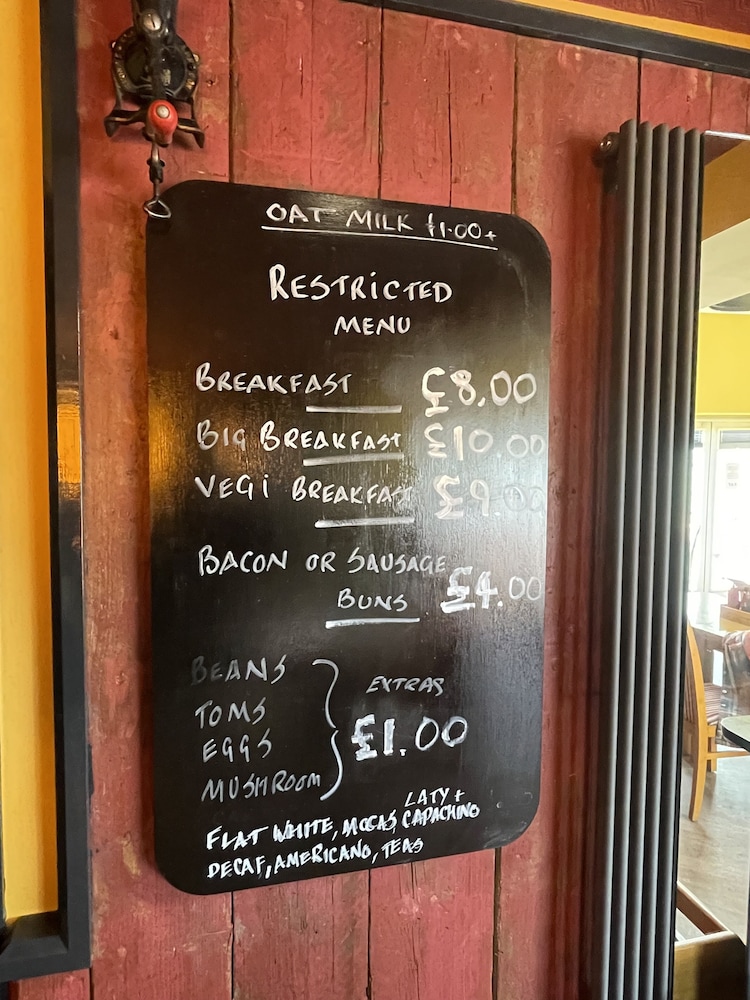 OAT MILK £1.00+
RESTRICTED
MENU
BREAKFAST £8.00
BIG BREAKFAST £10.00
VEGI BREAKFAST £9.00
BACON OR SAUSAGE
BUNS £4.00
BEANS
TOMS
EGGS
MUSHROOM
EXTRAS
£1.00
LATY +
FLAT WHITE, MOCAS, CAPACHINO
DECAF, AMERICANO, TEAS